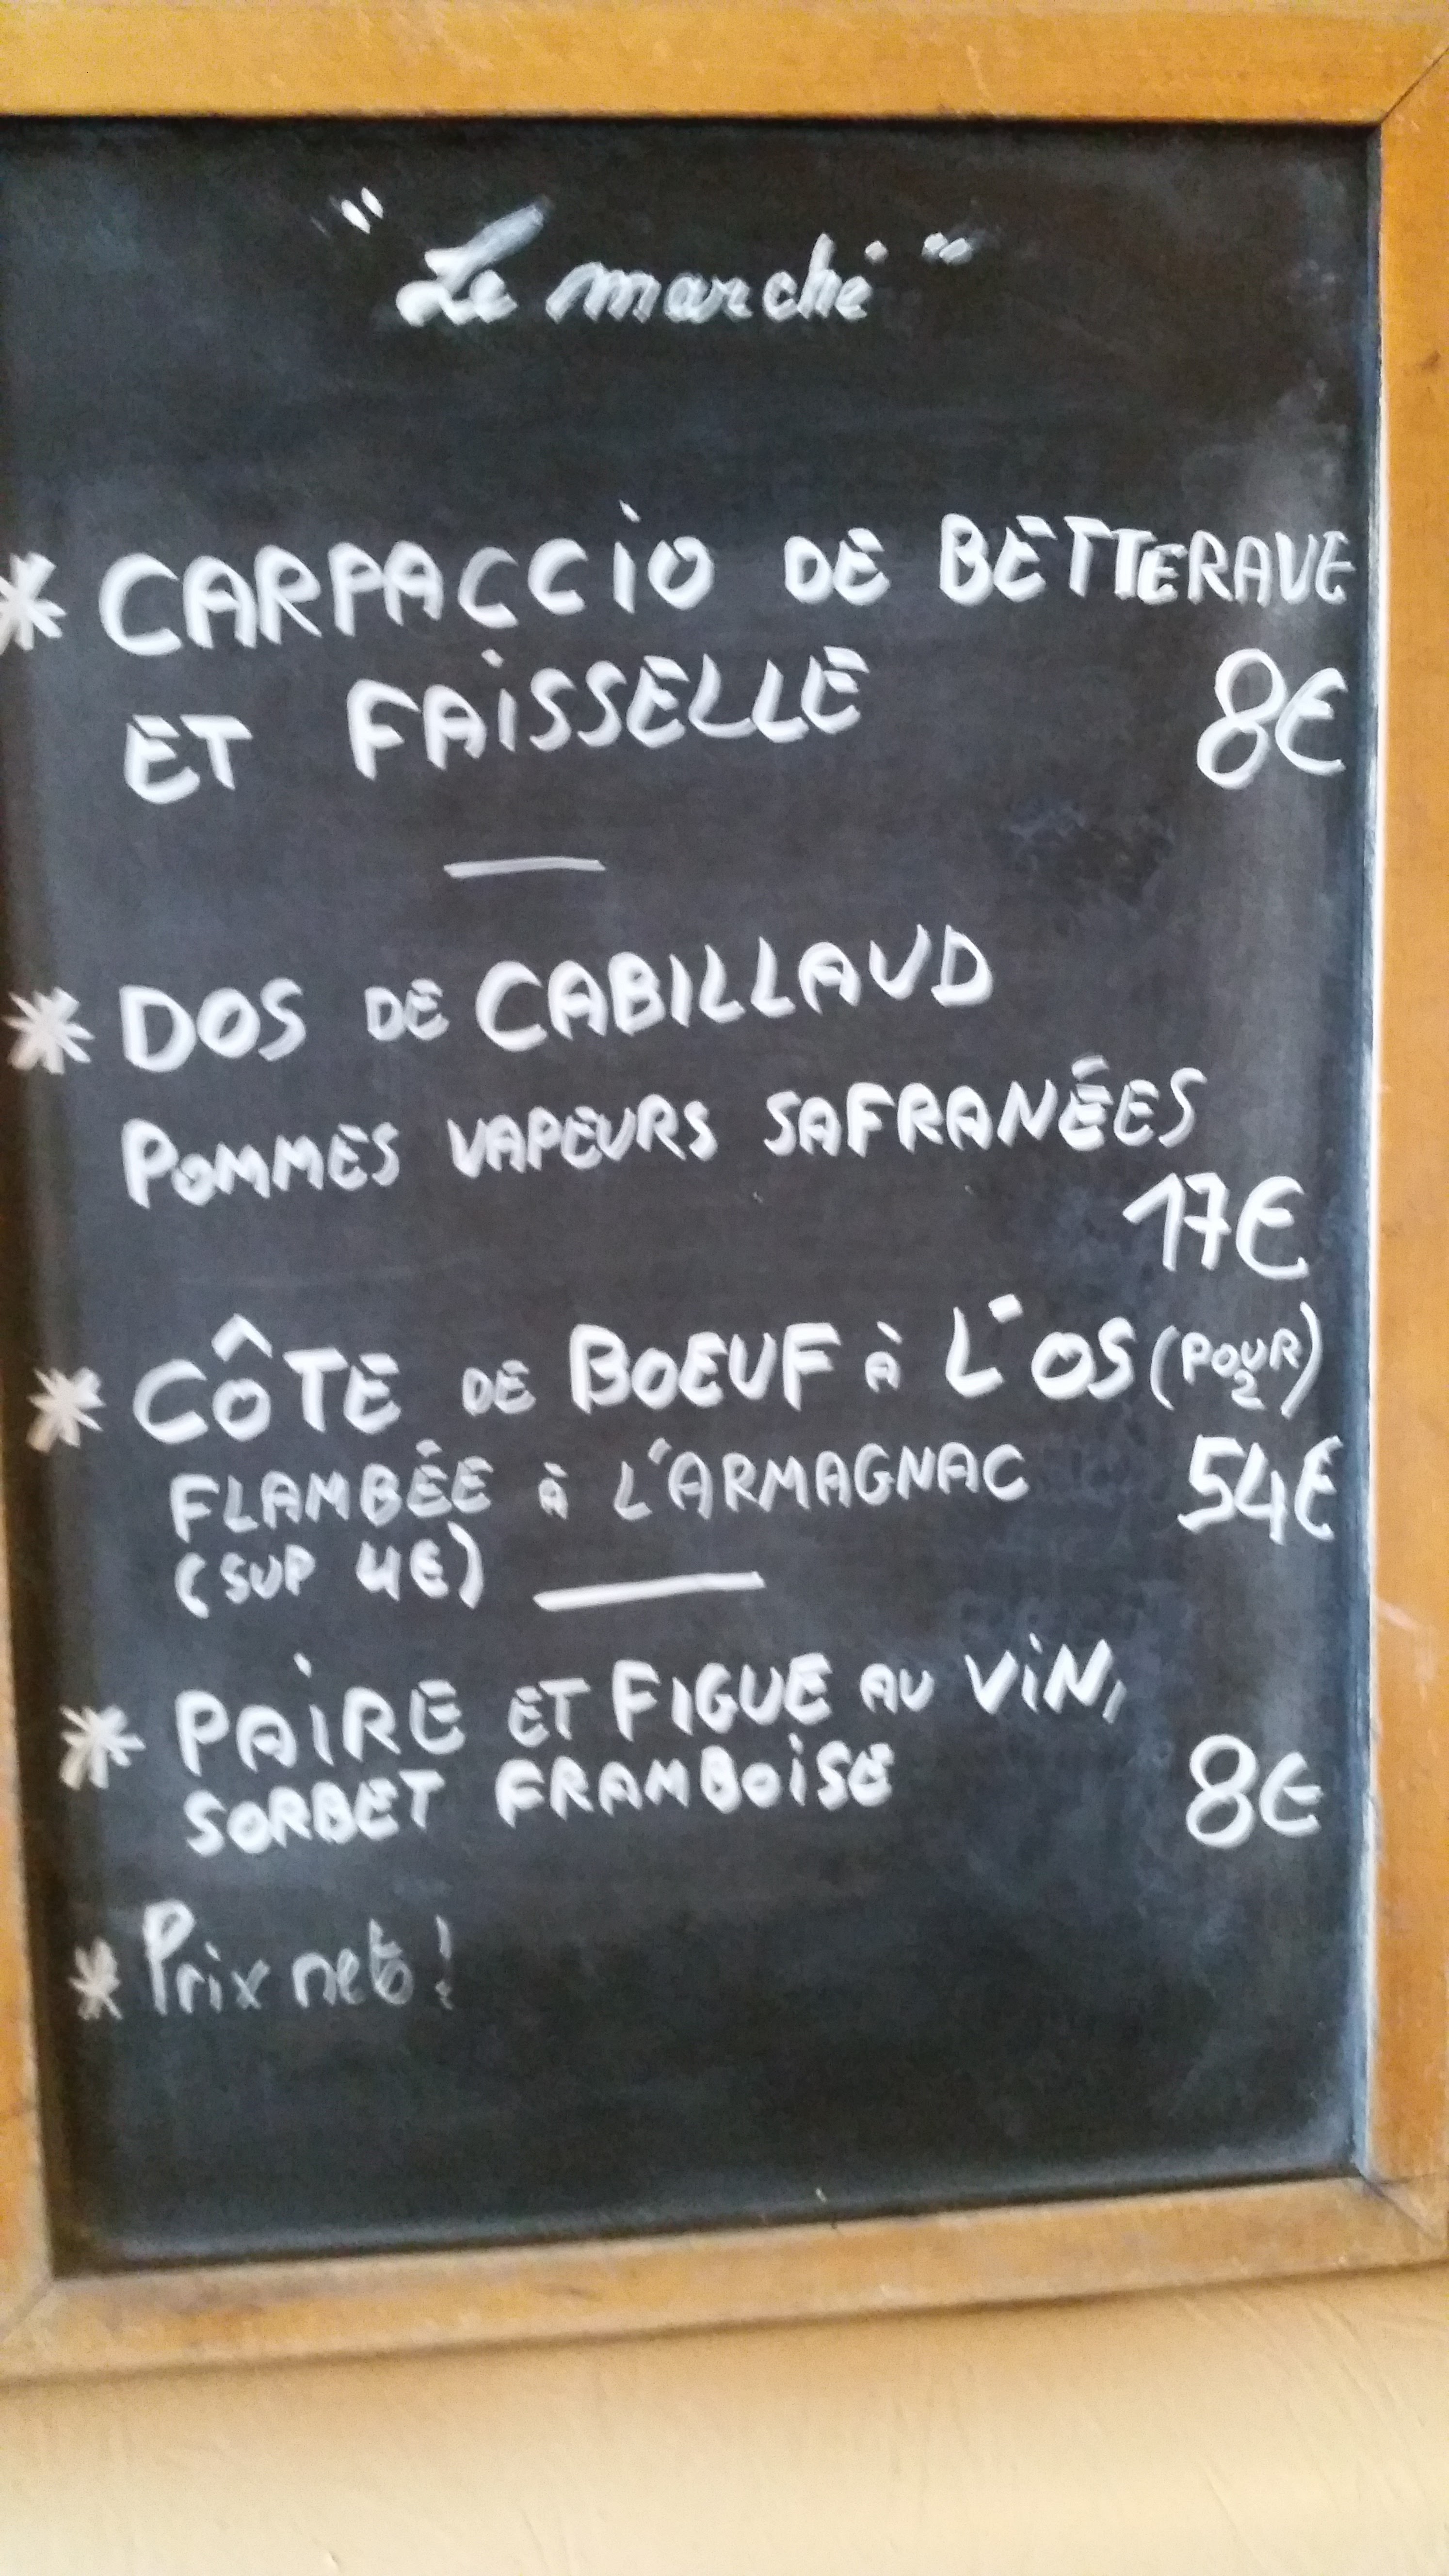 "Le marché"
* CARPACCIO DE BETTERAVE
ET FAISSELLE 8€
* DOS DE CABILLAUD
POMMES VAPEURS SAFRANÉES
17€
* CÔTE DE BOEUF À L'OS (POUR 2)
FLAMBÉE À L'ARMAGNAC 54€
(SUP 4€)
* PAIRE ET FIGUE AU VIN,
SORBET FRAMBOISE 8€
* Prix nets!